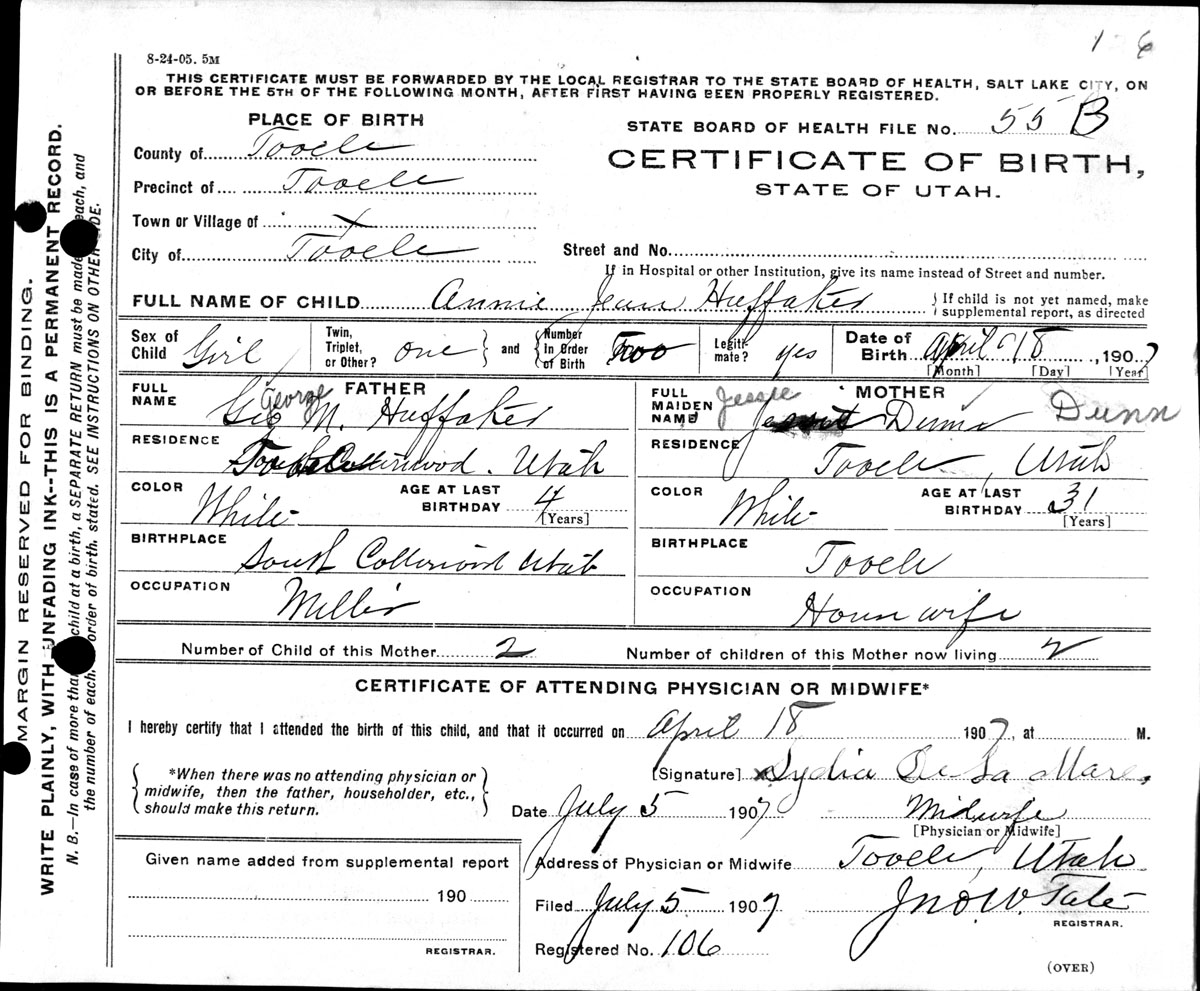 1 6
8-24-05. 5M
THIS CERTIFICATE MUST BE FORWARDED BY THE LOCAL REGISTRAR TO THE STATE BOARD OF HEALTH, SALT LAKE CITY, ON
OR BEFORE THE 5TH OF THE FOLLOWING MONTH, AFTER FIRST HAVING BEEN PROPERLY REGISTERED.
PLACE OF BIRTH
STATE BOARD OF HEALTH FILE No. 55 B
County of Tooele
CERTIFICATE OF BIRTH,
Precinct of Tooele
STATE OF UTAH.
Town or Village of x
City of Tooele
Street and No.
If in Hospital or other Institution, give its name instead of Street and number.
FULL NAME OF CHILD Annie Jean Huffaker } If child is not yet named, make
supplemental report, as directed
Sex of Child Girl
Twin, Triplet, or Other? one } and { Number In Order of Birth Two
Legiti-mate? yes
Date of Birth April 18, 1907
[Month] [Day] [Year]
FULL NAME FATHER
George
Geo M. Huffaker
FULL MAIDEN NAME MOTHER
Jessie Dunn Dunn
RESIDENCE Utah
RESIDENCE Tooele, Utah
COLOR White
AGE AT LAST BIRTHDAY 4
[Years]
COLOR White
AGE AT LAST BIRTHDAY 31
[Years]
BIRTHPLACE South Cottonwood Utah
BIRTHPLACE Tooele
OCCUPATION Miller
OCCUPATION House wife
Number of Child of this Mother 2
Number of children of this Mother now living 2
CERTIFICATE OF ATTENDING PHYSICIAN OR MIDWIFE*
I hereby certify that I attended the birth of this child, and that it occurred on April 18 1907, at M.
{ *When there was no attending physician or
midwife, then the father, householder, etc.,
should make this return. }
[Signature] x Lydia De La Mare,
Date July 5 1907 Midwife
[Physician or Midwife]
Given name added from supplemental report
190
REGISTRAR.
Address of Physician or Midwife Tooele, Utah
Filed July 5 1907 Jno. W. Tate
REGISTRAR.
Registered No. 106
(OVER)
MARGIN RESERVED FOR BINDING.
WRITE PLAINLY, WITH UNFADING INK--THIS IS A PERMANENT RECORD.
N. B.—In case of more than child at a birth, a SEPARATE RETURN must be made each, and
the number of each order of birth, stated. SEE INSTRUCTIONS ON OTHER